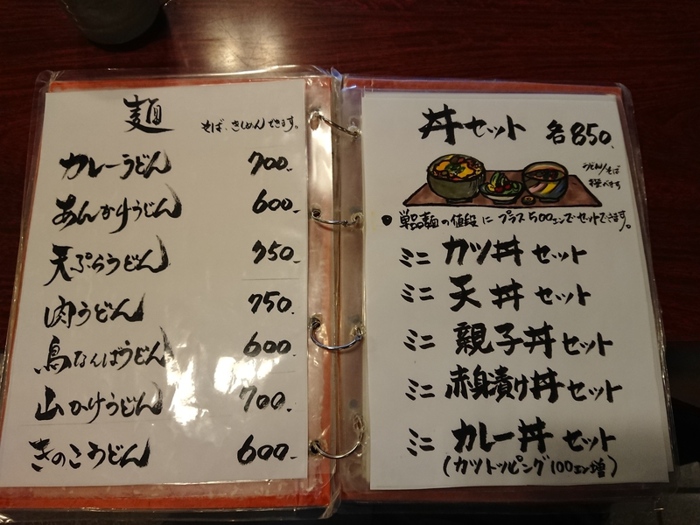 麺
そば、きしめんできます。
カレーうどん 700.
あんかけうどん 600.
天ぷらうどん 750.
肉うどん 750.
鳥なんばうどん 600.
山かけうどん 700.
きのこうどん 600.
丼セット 各850.
うどん/そば
選べます
●単品麺の値段にプラス500エンでセットできます。
ミニ カツ丼 セット
ミニ 天丼 セット
ミニ 親子丼 セット
ミニ 赤身漬け丼 セット
ミニ カレー丼 セット
(カツトッピング100エン増)